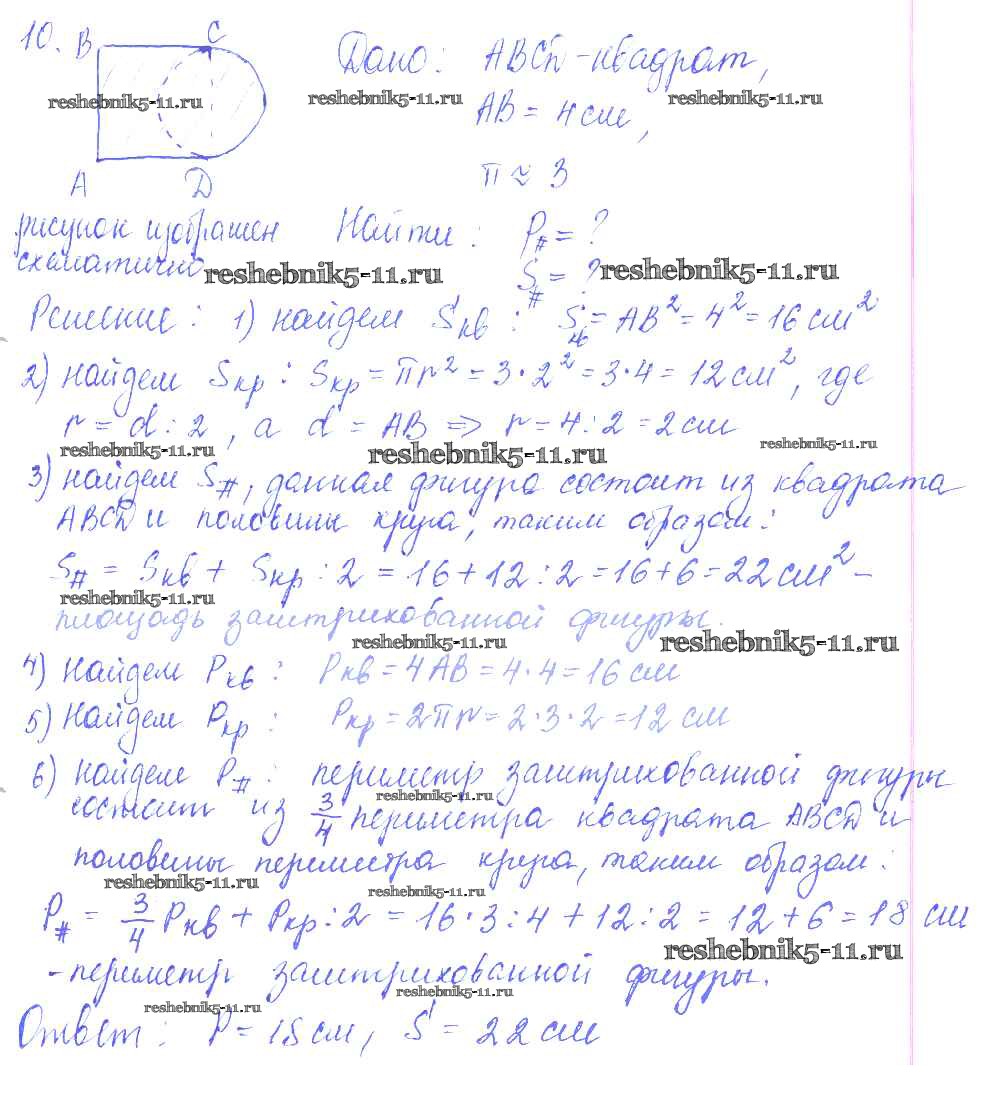 10. B C Дано: ABCD - квадрат,
reshebnik5-11.ru reshebnik5-11.ru reshebnik5-11.ru
AB = 4 см,
A D π ≈ 3
рисунок изображен Найти: P# = ?
схематично reshebnik5-11.ru S# = ? reshebnik5-11.ru
Решение: 1) найдем Sкв : Sкв = AB² = 4² = 16 см²
2) найдем Sкр : Sкр = πr² = 3·2² = 3·4 = 12 см², где
r = d : 2, а d = AB => r = 4 : 2 = 2 см
reshebnik5-11.ru reshebnik5-11.ru reshebnik5-11.ru
3) найдем S#, данная фигура состоит из квадрата
ABCD и половины круга, таким образом:
S# = Sкв + Sкр : 2 = 16 + 12 : 2 = 16 + 6 = 22 см² -
reshebnik5-11.ru
площадь заштрихованной фигуры.
reshebnik5-11.ru reshebnik5-11.ru
4) Найдем Pкв : Pкв = 4AB = 4·4 = 16 см
5) Найдем Pкр : Pкр = 2πr = 2·3·2 = 12 см
6) Найдем P# : периметр заштрихованной фигуры
reshebnik5-11.ru
состоит из 3/4 периметра квадрата ABCD и
половины периметра круга, таким образом:
reshebnik5-11.ru reshebnik5-11.ru
P# = 3/4 Pкв + Pкр : 2 = 16·3:4 + 12:2 = 12 + 6 = 18 см
reshebnik5-11.ru
- периметр заштрихованной фигуры.
reshebnik5-11.ru reshebnik5-11.ru
Ответ: P = 18 см, S = 22 см